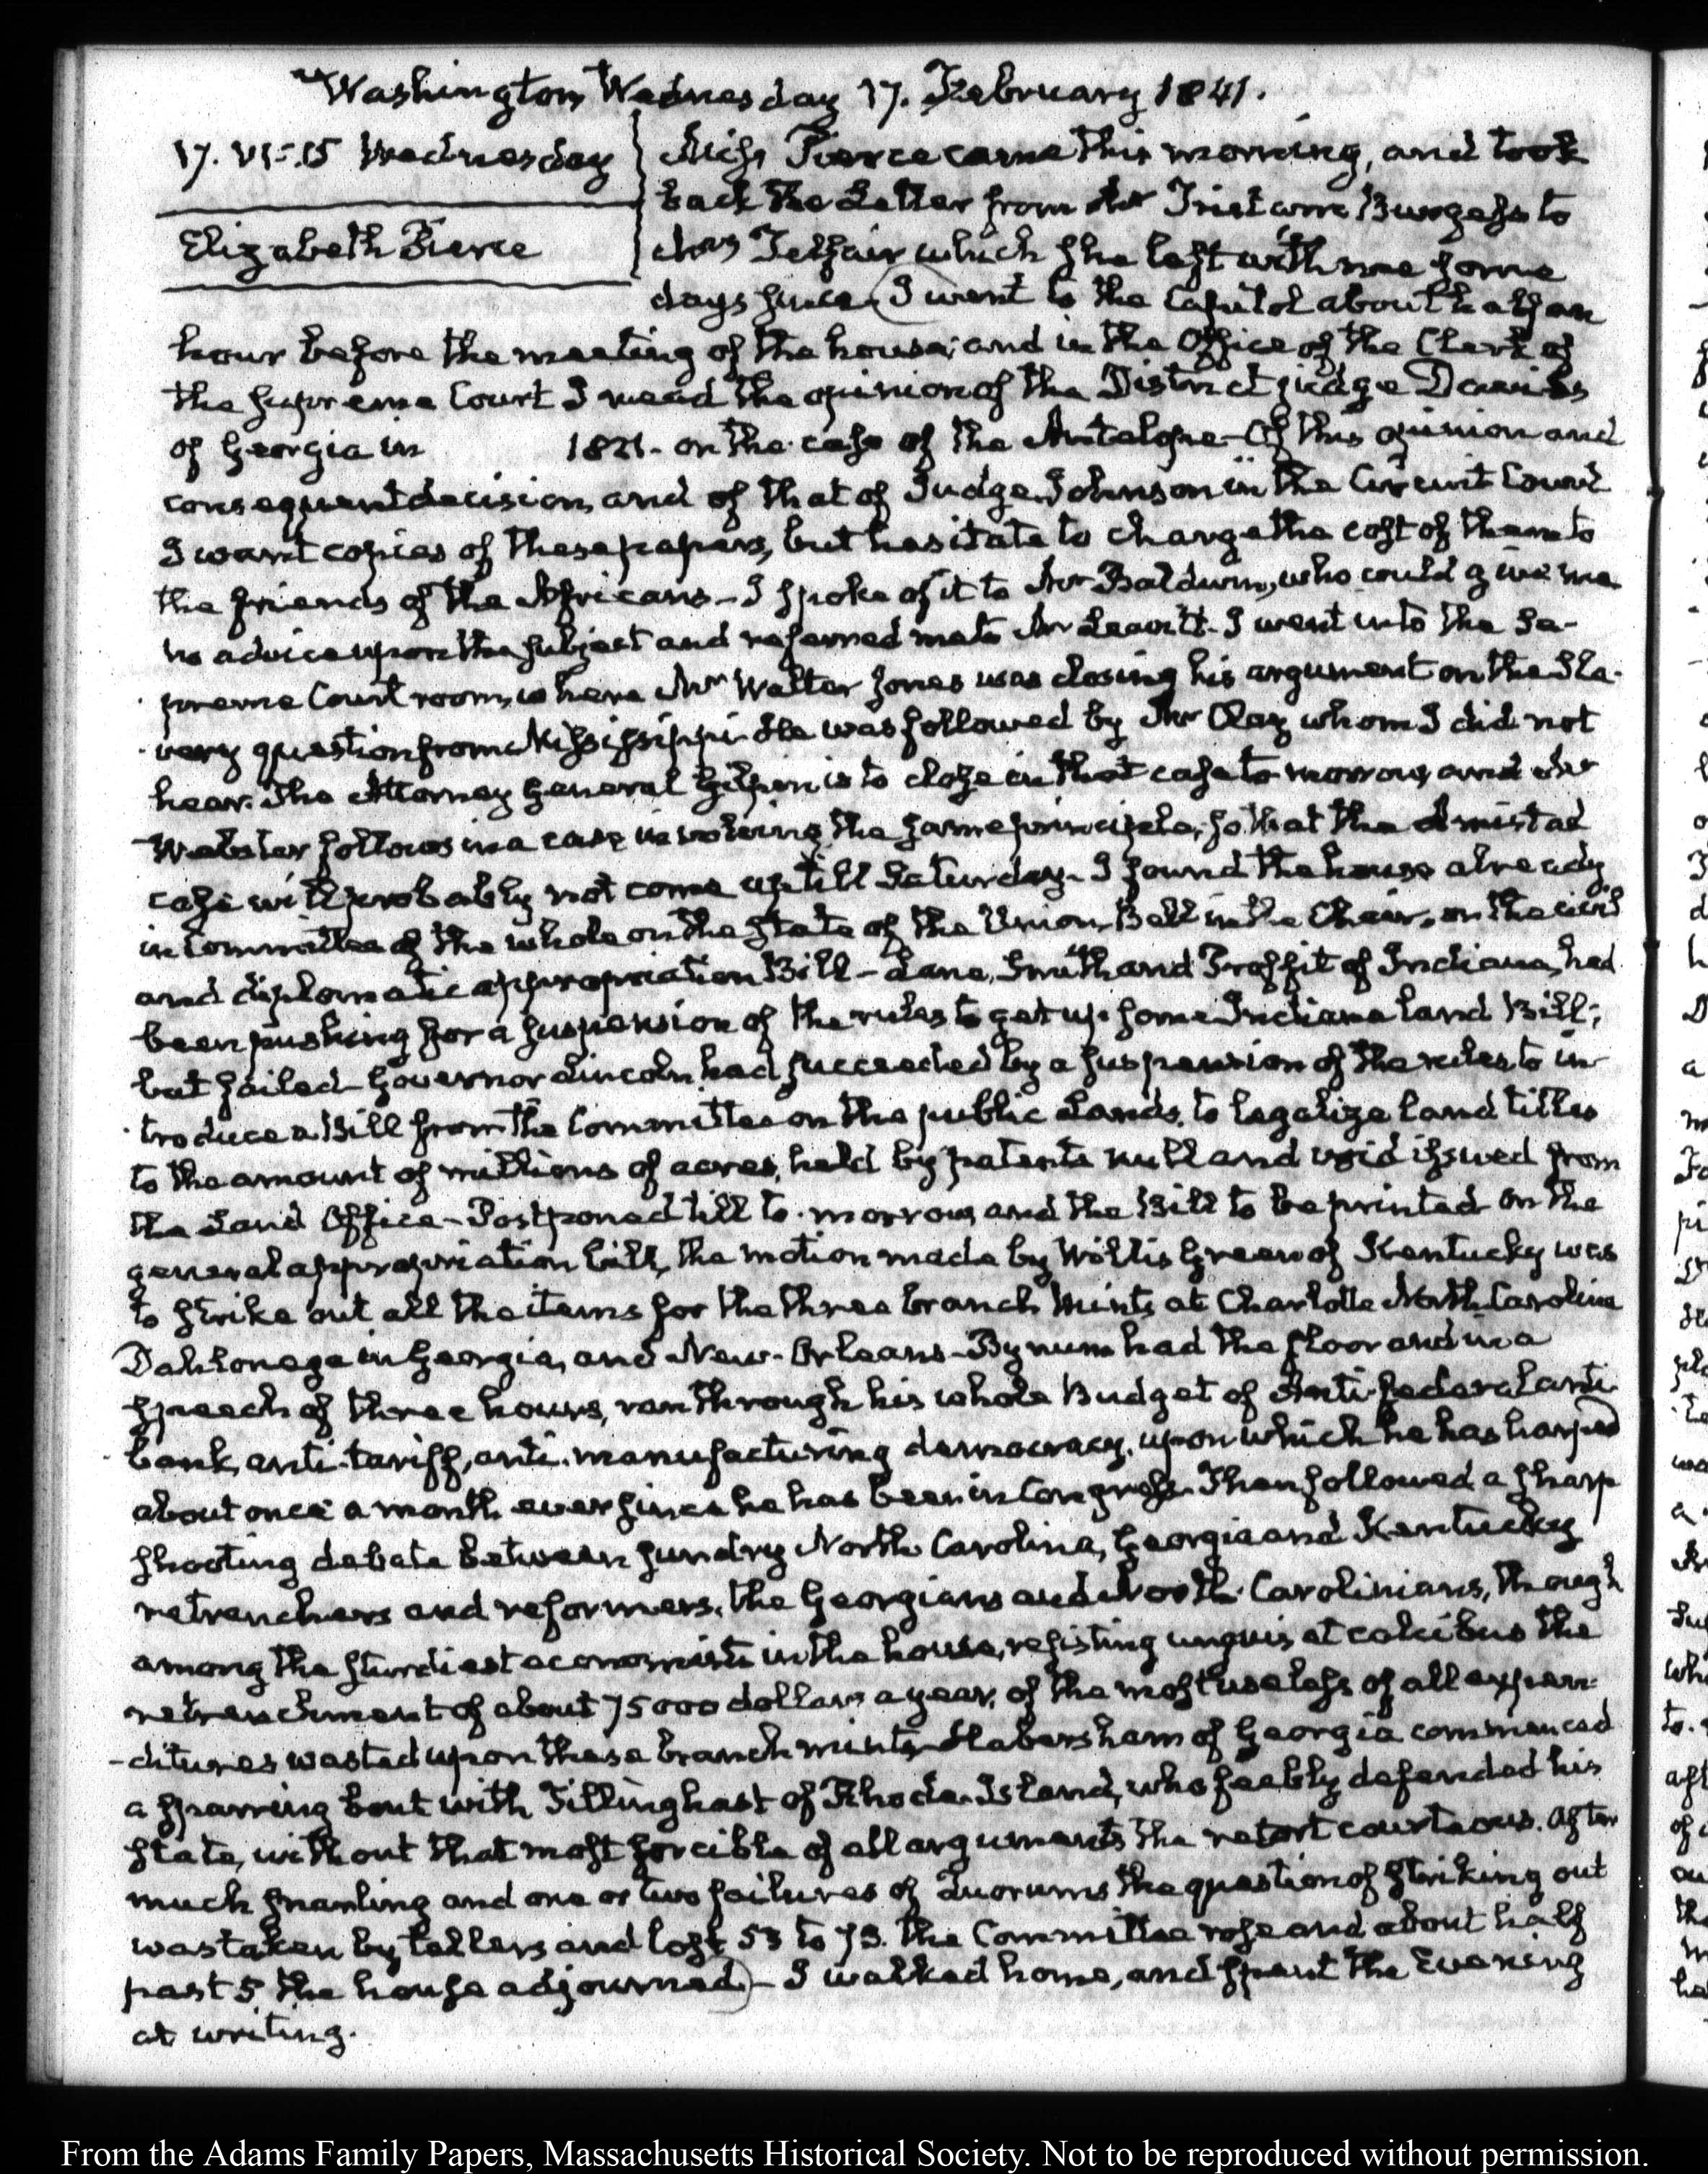 Washington Wednesday 17. February 1841.
17. VI:15 Wednesday
Elizabeth Pierce
Miss Pierce came this morning, and took
back the Letter from Mr Burgess to
Mrs Telfair which she left with me some
days since (I went to the Capitol about half an
hour before the meeting of the house; and in the Office of the Clerk of
the Supreme Court I read the opinion of the District judge Davies
of Georgia in 1821. on the case of the Antelope- Of this opinion and
consequent decision, and of that of Judge Johnson in the Circuit Court
I want copies of these papers, but hesitate to charge the cost of them to
the friends of the Africans- I spoke of it to Mr Baldwin, who could give me
no advice upon the subject and referred me to Mr Leavitt- I went into the Su-
preme Court room, where Mr Walter Jones was closing his argument on the Sla-
very question from Mississippi- He was followed by Mr Clay whom I did not
hear. The Attorney General Gilpin is to close in that case to-morrow, and Mr
Webster follows in a case involving the same principle, so that the Amistad
case will probably not come up till Saturday- I found the house already
in Committee of the whole on the state of the Union, Bell in the Chair, on the civil
and diplomatic appropriation Bill- Lane, Smith and Proffit of Indiana, had
been pushing for a suspension of the rules to get up some Indiana land Bill;
but failed- Governor Lincoln had succeeded by a suspension of the rules to in-
troduce a Bill from the Committee on the public Lands, to legalize land titles
to the amount of millions of acres, held by patents null and void issued from
the Land Office- Postponed till to-morrow, and the Bill to be printed- On the
general appropriation bill, the motion made by Willis Green of Kentucky was
to strike out all the items for the three branch Mints at Charlotte North Carolina
Dahlonega in Georgia, and New-Orleans- Bynum had the floor and in a
speech of three hours, ran through his whole Budget of Anti-federal anti-
bank, anti-tariff, anti-manufacturing democracy, upon which he has harped
about once a month ever since he has been in Congress- Then followed a sharp
shooting debate between sundry North Carolina, Georgia and Kentucky
retrenchers and reformers, the Georgians and North-Carolinians, though
among the sturdiest economists in the house, resisting unguis et calcibus the
retrenchment of about 75000 dollars a year, of the most useless of all expen-
ditures wasted upon these branch mints- Habersham of Georgia commenced
a sparring bout with Tillinghast of Rhode-Island, who feebly defended his
State, without that most forcible of all arguments the retort courteous. After
much snarling and one or two failures of Quorums the question of striking out
was taken by tellers and lost 53 to 73. The Committee rose and about half
past 5 the house adjourned)- I walked home, and spent the Evening
at writing.
From the Adams Family Papers, Massachusetts Historical Society. Not to be reproduced without permission.